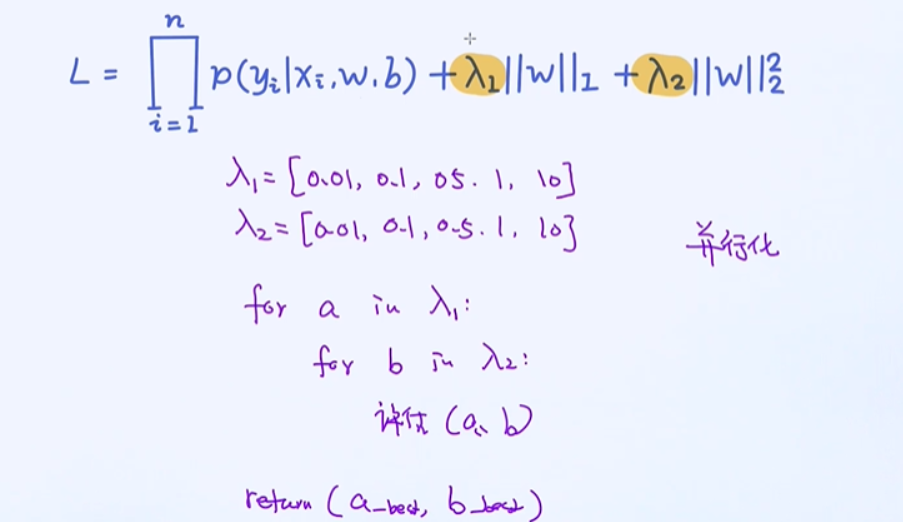 L = ∏_{i=1}^{n} p(y_i|x_i,w,b) + λ_1||w||_1 + λ_2||w||_2^2
λ_1 = [0.01, 0.1, 05. 1, 10]
λ_2 = [0.01, 0.1, 0.5. 1, 10]
并行化
for a in λ_1:
for b in λ_2:
评估 (a, b)
return (a_best, b_best)